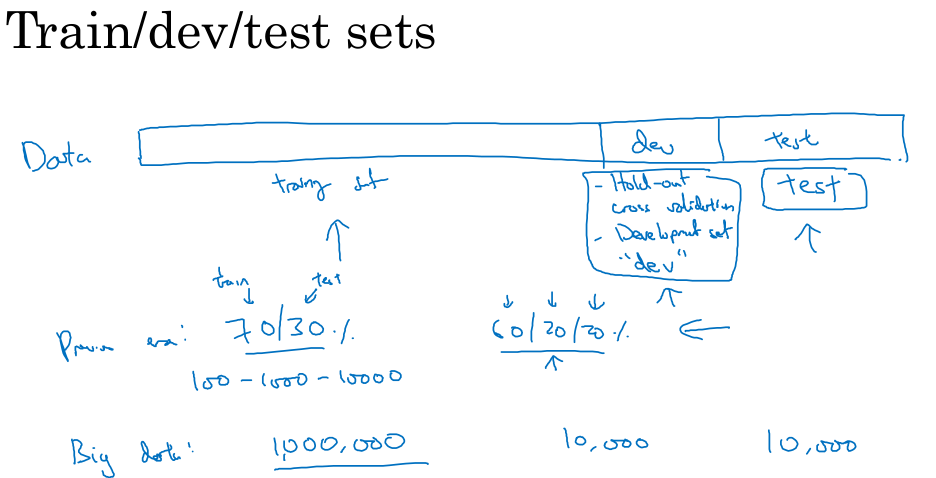 Train/dev/test sets
Data
dev
test
training set
- Hold-out
cross validation
- Development set
"dev"
test
train
test
Previous era:
70/30 %
60/20/20 %
100 - 1000 - 10000
Big data:
1,000,000
10,000
10,000